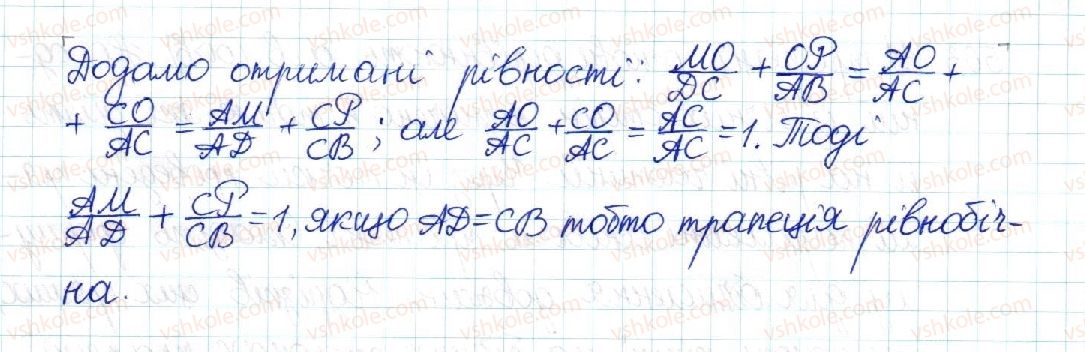 Додамо отримані рівності: MO/DC + OP/AB = AO/AC +
+ CO/AC = AM/AD + CP/CB; але AO/AC + CO/AC = AC/AC = 1. Тоді
AM/AD + CP/CB = 1, якщо AD = CB тобто трапеція рівнобіч-
на.